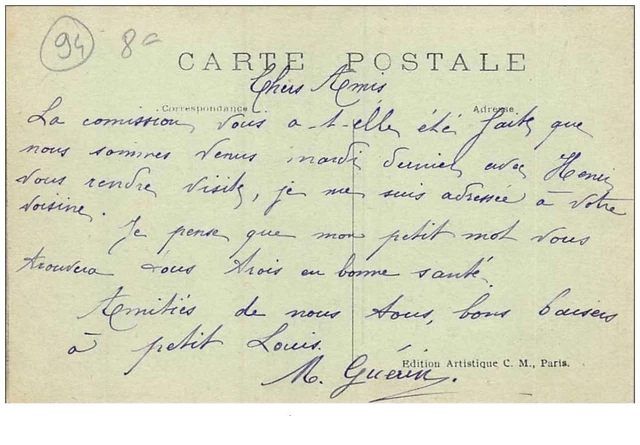 94 8€
CARTE POSTALE
Chers Amis
Correspondance Adresse
La comission vous a-t-elle été faite que
nous sommes venus mardi dernier avec Henri
vous rendre visite, je me suis adressée à votre
voisine.
Je pense que mon petit mot vous
trouvera tous trois en bonne santé.
Amitiés de nous tous, bons baisers
à petit Louis.
Edition Artistique C. M., Paris.
M. Guérin.